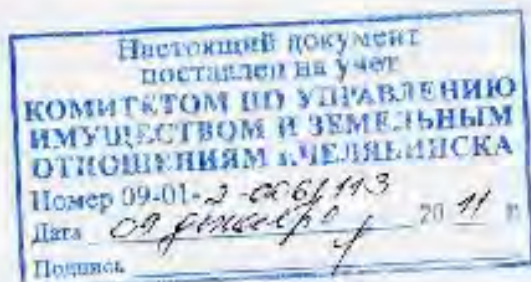 Настоящий документ
поставлен на учет
КОМИТЕТОМ ПО УПРАВЛЕНИЮ
ИМУЩЕСТВОМ И ЗЕМЕЛЬНЫМ
ОТНОШЕНИЯМ г.ЧЕЛЯБИНСКА
Номер 09-01-
Дата 09 декабря 20 11 г.
Подпись